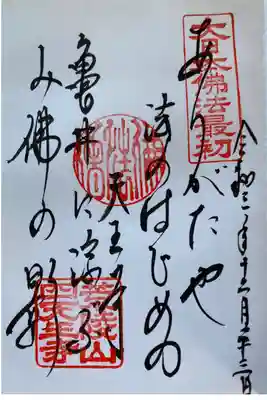 大日本佛法最初
令和三年十二月二十三日
ありがたや
法のはじめの
天王寺
亀井に浮ぶ
み佛の影
荒陵山
四天王寺